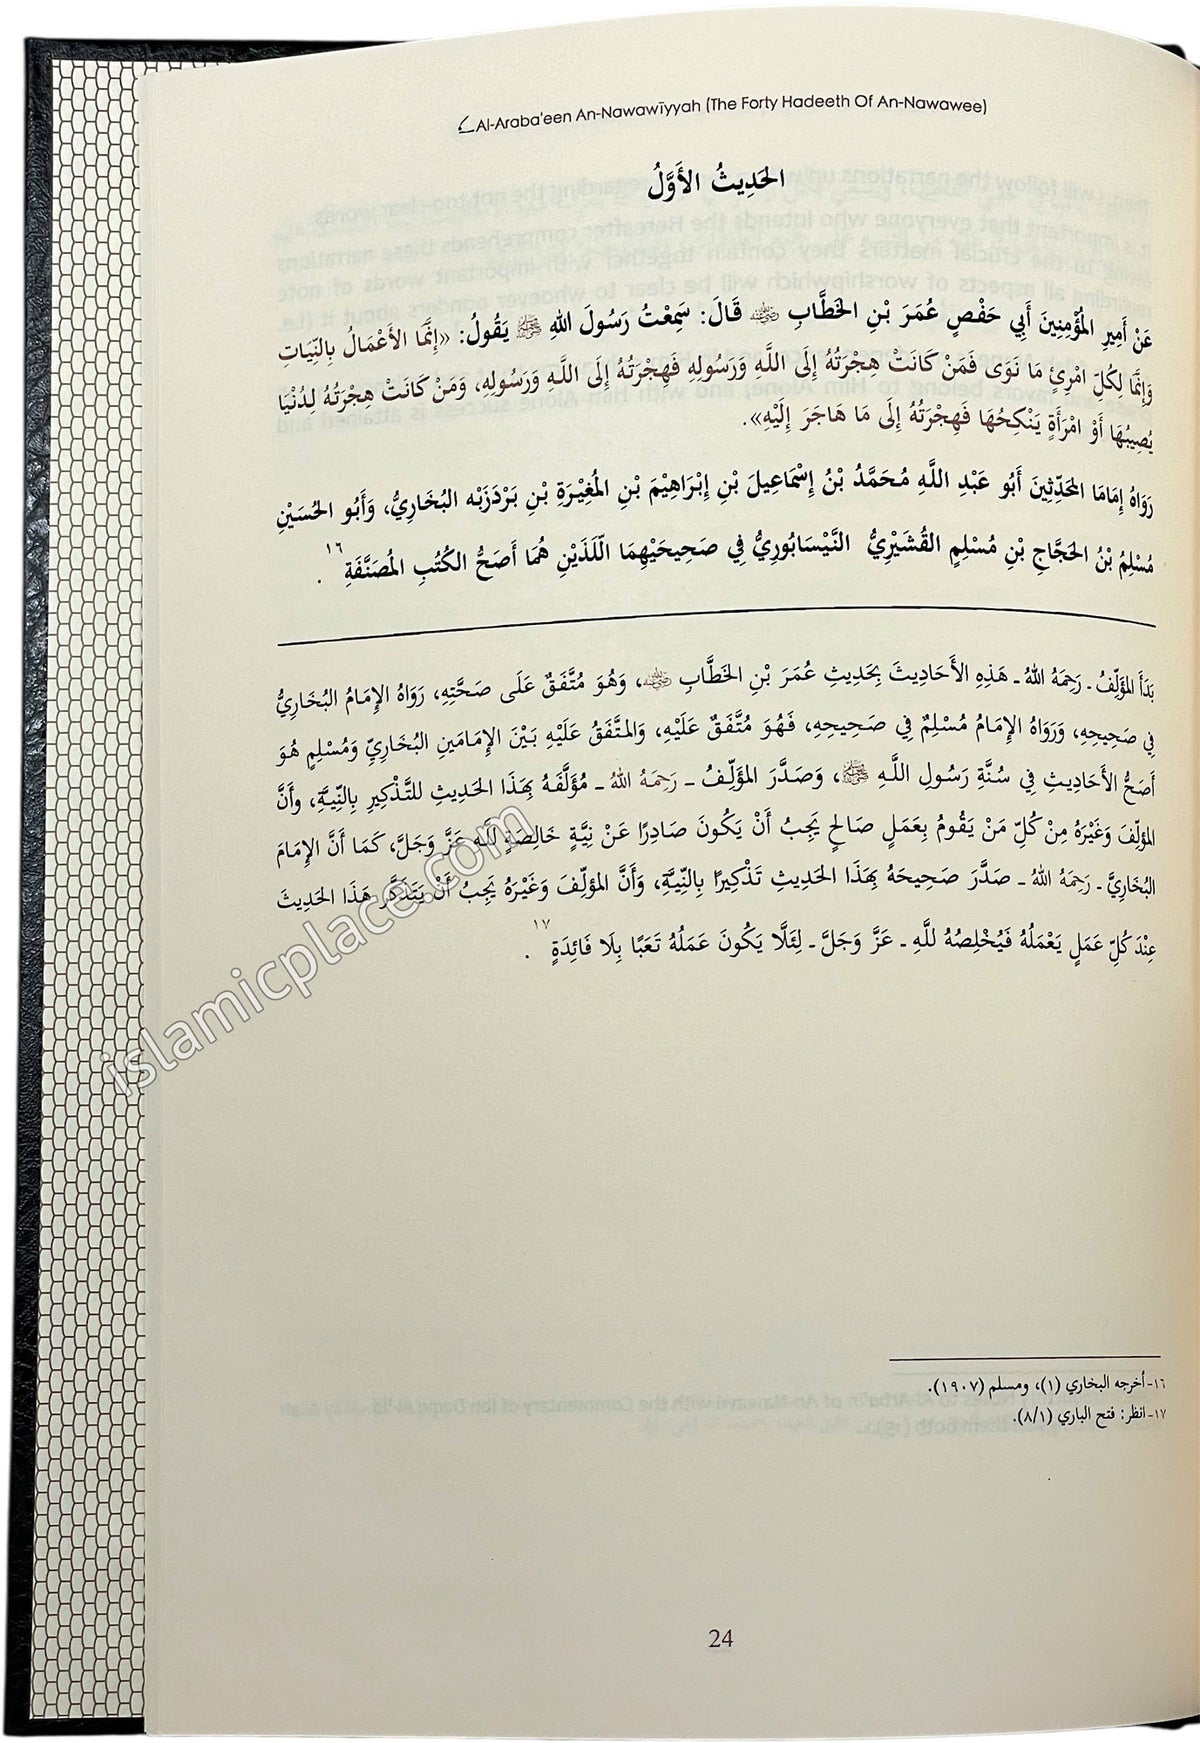 Al-Araba'een An-Nawawīyyah (The Forty Hadeeth Of An-Nawawee)
الحَدِيثُ الأَوَّلُ
عَنْ أَمِيرِ المُؤْمِنِينَ أَبِي حَفْصٍ عُمَرَ بْنِ الخَطَّابِ ﷺ قَالَ: سَمِعْتُ رَسُولَ اللهِ ﷺ يَقُولُ: «إِنَّمَا الأَعْمَالُ بِالنِّيَاتِ
وَإِنَّمَا لِكُلِّ امْرِئٍ مَا نَوَى فَمَنْ كَانَتْ هِجْرَتُهُ إِلَى اللَّهِ وَرَسُولِهِ فَهِجْرَتُهُ إِلَى اللَّهِ وَرَسُولِهِ، وَمَنْ كَانَتْ هِجْرَتُهُ لِدُنْيَا
يُصِيبُهَا أَوْ امْرَأَةٍ يَنْكِحُهَا فَهِجْرَتُهُ إِلَى مَا هَاجَرَ إِلَيْهِ».
رَوَاهُ إِمَامَا المُحَدِّثِينَ أَبُو عَبْدِ اللَّهِ مُحَمَّدُ بْنُ إِسْمَاعِيلَ بْنِ إِبْرَاهِيمَ بْنِ المُغِيرَةِ بْنِ بَرْدَزْبَه البُخَارِيُّ، وَأَبُو الحُسَيْنِ
مُسْلِمُ بْنُ الحَجَّاجِ بْنِ مُسْلِمٍ القُشَيْرِيُّ النَّيْسَابُورِيُّ فِي صَحِيحَيْهِمَا اللَّذَيْنِ هُمَا أَصَحُّ الكُتُبِ المُصَنَّفَةِ ١٦ .
بَدَأَ المُؤَلِّفُ ـ رَحِمَهُ اللهُ ـ هَذِهِ الأَحَادِيثَ بِحَدِيثِ عُمَرَ بْنِ الخَطَّابِ، وَهُوَ مُتَّفَقٌ عَلَى صَحَّتِهِ، رَوَاهُ الإِمَامُ البُخَارِيُّ
فِي صَحِيحِهِ، وَرَوَاهُ الإِمَامُ مُسْلِمٌ فِي صَحِيحِهِ، فَهُوَ مُتَّفَقٌ عَلَيْهِ، وَالمتَّفَقُ عَلَيْهِ بَيْنَ الإِمَامَينِ البُخَارِيِّ وَمُسْلِمٍ هُوَ
أَصَحُّ الأَحَادِيثِ فِي سُنَّةِ رَسُولِ اللَّهِ ﷺ، وَصَدَّرَ المُؤَلِّفُ ـ رَحِمَهُ اللهُ ـ مُؤَلَّفَهُ بِهَذَا الحَدِيثِ للتَّذْكِيرِ بِالنِّيَّةِ، وأَنَّ
المُؤَلِّفَ وَغَيْرَهُ مِنْ كُلِّ مَنْ يَقُومُ بِعَمَلٍ صَالِحٍ يَجِبُ أَنْ يَكُونَ صَادِرًا عَنْ نِيَّةٍ خَالِصَةٍ للَّهِ عَزَّ وَجَلَّ، كَمَا أَنَّ الإِمَامَ
البُخَارِيَّ ـ رَحِمَهُ اللهُ ـ صَدَّرَ صَحِيحَهُ بِهَذَا الحَدِيثِ تَذْكِيرًا بِالنِّيَّةِ، وَأَنَّ المُؤَلِّفَ وَغَيْرَهُ يَجِبُ أَنْ يَتَذَكَّرَ هَذَا الحَدِيثَ
عِنْدَ كُلِّ عَمَلٍ يَعْمَلُهُ فَيُخْلِصُهُ للَّهِ ـ عَزَّ وَجَلَّ ـ لِئَلَّا يَكُونَ عَمَلُهُ تَعَبًا بِلَا فَائِدَةٍ ١٧ .
islamicplace.com
١٦- أخرجه البخاري (١)، ومسلم (١٩٠٧).
١٧- انظر: فتح الباري (٨/١).
24